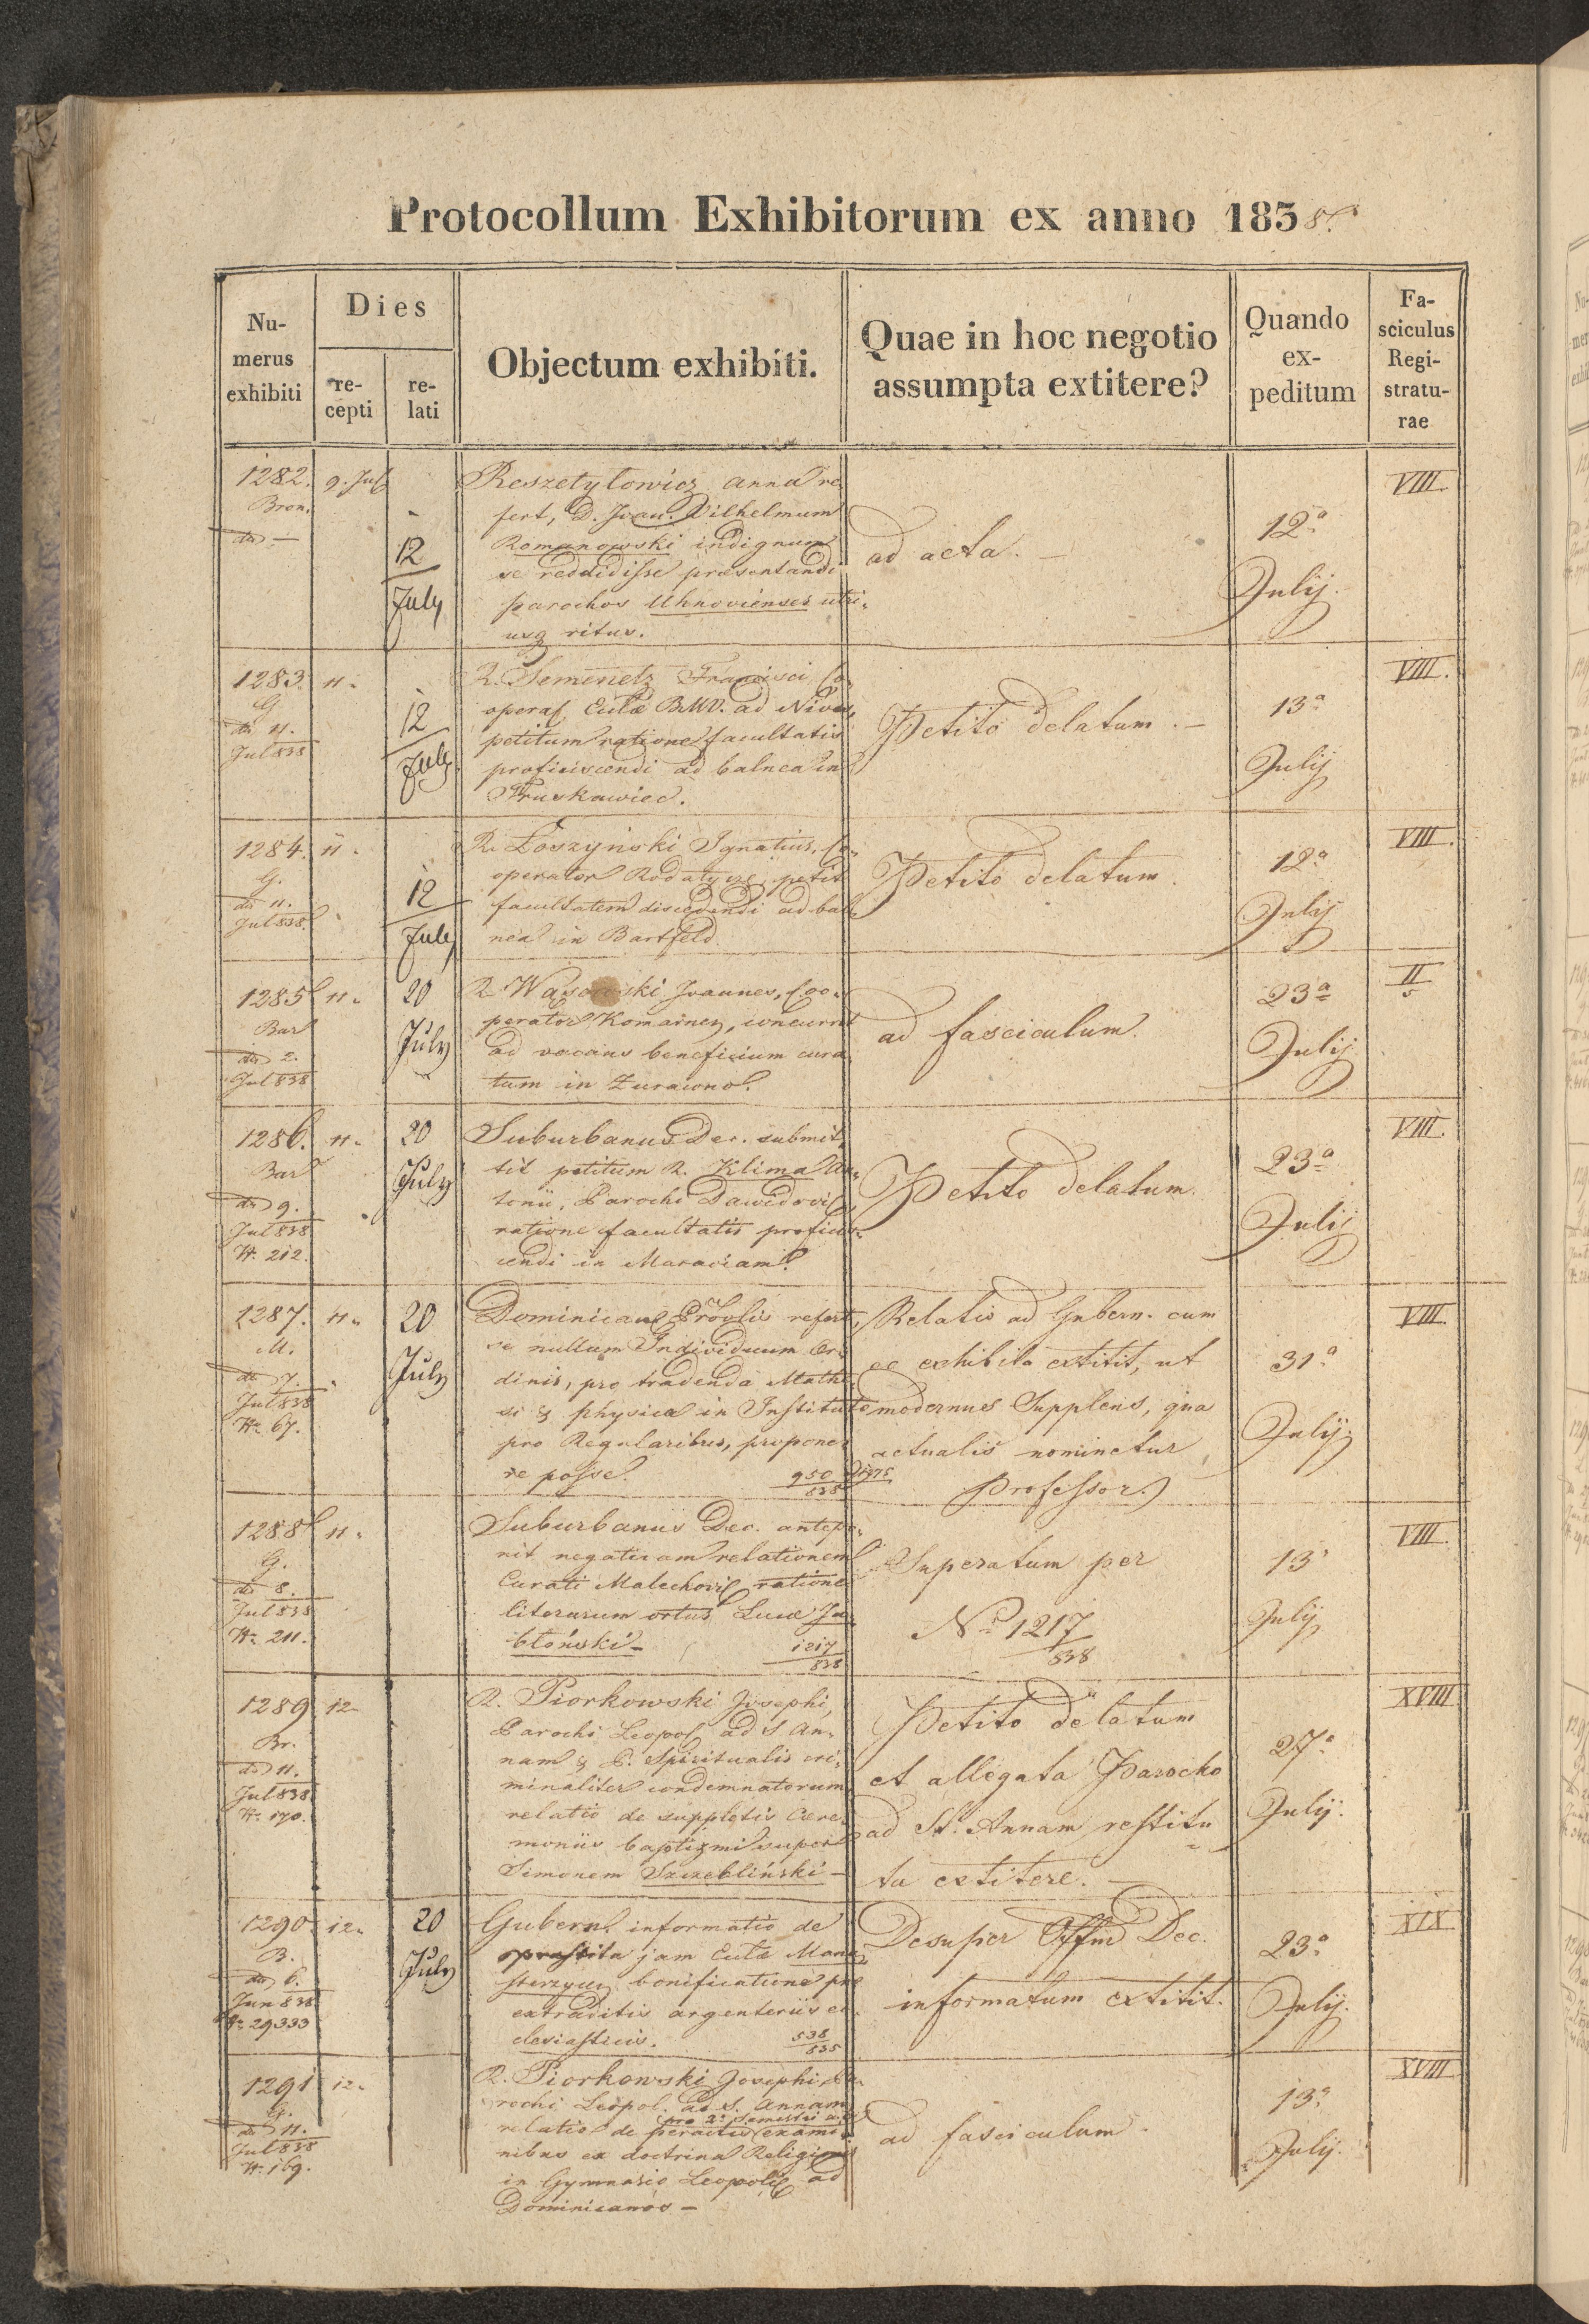 Protocollum Exhibitorum ex anno 1838.
Nu-
merus
exhibiti
Dies
re-
cepti
re-
lati
Objectum exhibiti.
Quae in hoc negotio
assumpta extitere?
Quando
ex-
peditum
Fa-
sciculus
Regi-
stratu-
rae
1282.
Bron.
9. Jul
12
July
Reszetyłowicz Anna re
fert, D. Joan. Vilhelmum
Romanowski indignum
se reddidisse præsentandi
parochos Uhnovienses utri-
usq ritus.
ad acta. —
12a
Julij.
VIII.
1283.
G
11.
Jul 838
11.
12
July
R. Semenetz Francisci, Co-
operat Eccłæ B.M.V. ad Nives,
petitum ratione facultatis
proficiscendi ad balnea in
Truskawiec.
Petito delatum. —
13a
Julij
VIII.
1284.
G.
11.
Jul 838.
11.
12
July
R. Łoszyński Ignatius, Co-
operator Rodatycze, petit
facultatem discedendi ad bal-
nea in Bartfeld
Petito delatum.
12a
Julij
VIII.
1285
Bar
2.
Jul 838
11.
20
July
R. Wąsowski Joannes, Coo-
perator Komarnen, concurrit
ad vacans beneficium cura
tum in Zurawno.
ad fasciculum
23a
Julij
II
5
1286.
Bar
9.
Jul 838
N. 212.
11.
20
July
Suburbanus Dec. submit-
tit petitum R. Klima An-
tonii, Parochi Dawidovi
ratione facultatis profici-
cendi in Moraviam.
Petito delatum.
23a
Julij
VIII.
1287.
M.
7.
Jul 838
N. 67.
11.
20
July
Dominican Provlis refert,
se nullum Individuum Or-
dinis, pro tradenda Mathe-
si & physica in Instituto
pro Regularibus, propone-
re posse.
950
838
1975
Relatio ad Gubern. cum
ec exhibita extitit, ut
modernus Supplens, qua
actualis nominetur
Professor.
31a
Julij.
VIII.
1288
G.
8.
Jul 838
N. 211.
11.
Suburbanus Dec. antepo-
nit negativam relationem
Curati Malechovi ratione
literarum ortus Lucæ Ja-
błoński —
1217
838
Superatum per
No 1217
838
13
Julij
VIII.
1289
Br.
11.
Jul 838
N. 170.
12
R. Piorkowski Josephi,
Parochi Leopol ad S. An-
nam & P. Spiritualis cri-
minaliter condemnatorum
relatio de suppletis Cære-
moniis baptizmi super
Simonem Szczebliński —
Petito delatum
et allegata Parocho
ad St. Annam restitu
ta extitere. —
27a
Julij.
XVIII
1290
B.
6.
Jun 838
N. 29333
12.
20
July
Gubern. informatio de
præstita jam Eccłæ Mona-
sterzycen bonificatione pro
extraditis argenteriis ec-
clesiasticis.
538
835
Desuper Offm Dec.
informatum extitit.
23a
Julij.
XIX
1291
G.
11.
Jul 838
N. 169.
12.
R. Piorkowski Josephi, Pa-
rochi Leopol. ad S. Annam
pro 2o Semestri
relatio de peractis exami-
nibus ex doctrina Religionis
in Gymnasio Leopoli ad
Dominicanos —
ad fasciculum.
13a
Julij.
XVIII